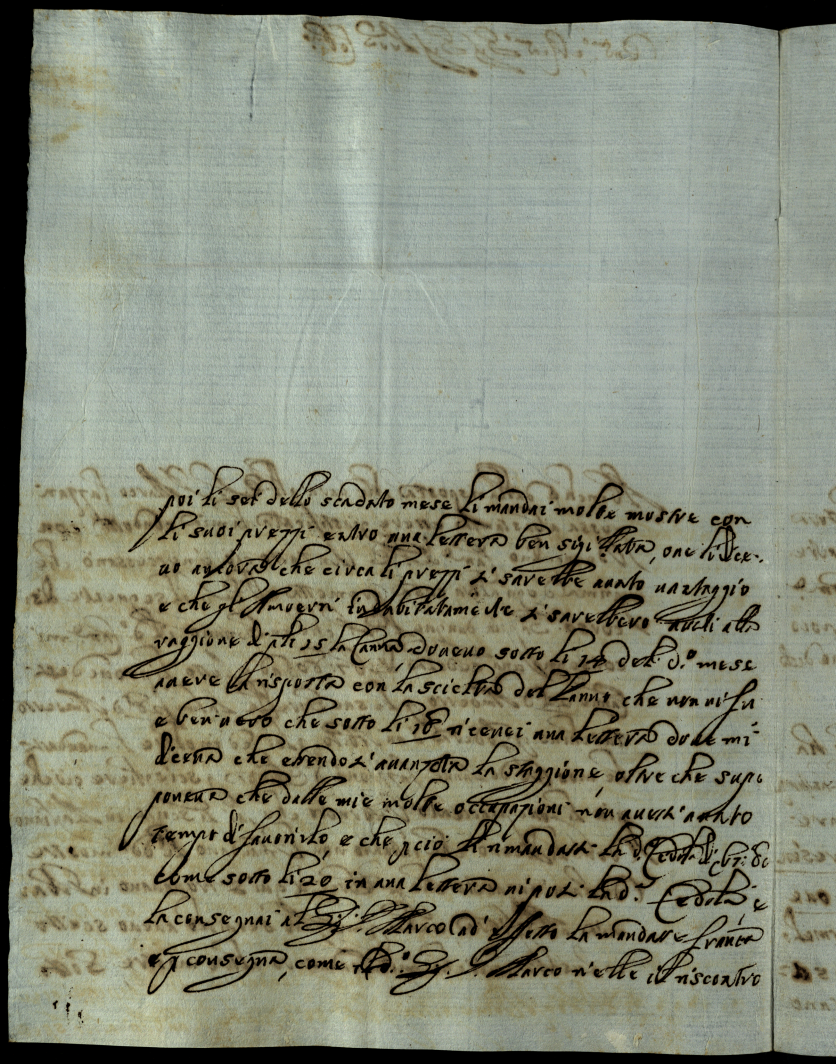 poi li sei dello scadato mese li mandai molte mostre con
li suoi prezzi entro una lettera ben sigillata, oue li scri-
uo ancora che circa li prezzi si sarebbe auuto uantaggio
e che gl' indubitatamente si sarebbero auuti alla
raggione di 15 la Canna doueuo sotto li 18 del d.º mese
auere la risposta con la scielta del Panno che non ui fu
e ben uero che sotto li 18 riceuei una lettera doue mi
diceua che essendosi auanzata la staggione oltre che supo
poneua che dalle mie molte occupazioni non auessi auuto
tempo di fauorirlo e che pciò li rimandassi la d.ª Cedola di
come sotto li 20 in una lettera ui posi la d.ª Cedola, e
la consegnai al Sig.r D. Marco ad effetto la mandasse franca
e p consegna, come d.º Sig.r D. Marco n'ebbe il riscontro